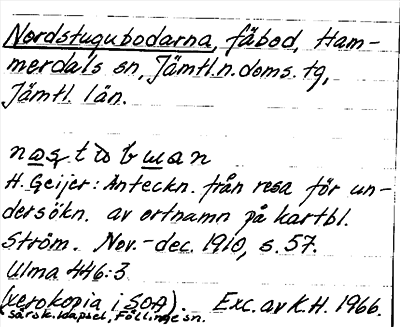 Nordstugubodarna, fäbod, Ham-
merdals sn, Jämtl.n.doms. tg,
Jämtl. län.
H. Geijer: Anteckn. från resa för un-
dersökn. av ortnamn på kartbl.
Ström. Nov.-dec. 1910, s. 57.
Ulma 446:3
(xerokopia i SOA). Exc. av K.H. 1966.
särsk. kapsel, Föllinge sn.